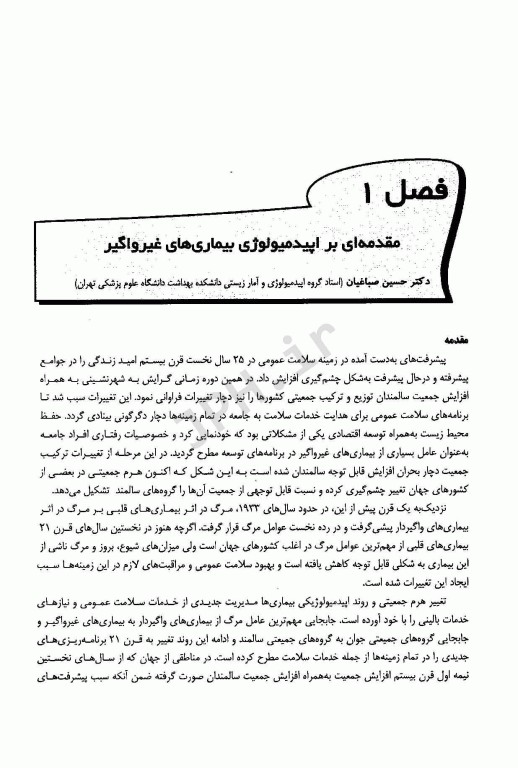 فصل ۱
مقدمه‌ای بر اپیدمیولوژی بیماری‌های غیرواگیر
دکتر حسین صباغیان (استاد گروه اپیدمیولوژی و آمار زیستی دانشکده بهداشت دانشگاه علوم پزشکی تهران)
مقدمه
پیشرفت‌های به‌دست آمده در زمینه سلامت عمومی در ۲۵ سال نخست قرن بیستم امید زندگی را در جوامع
پیشرفته و درحال پیشرفت به‌شکل چشم‌گیری افزایش داد. در همین دوره زمانی گرایش به شهرنشینی به همراه
افزایش جمعیت سالمندان توزیع و ترکیب جمعیتی کشورها را نیز دچار تغییرات فراوانی نمود. این تغییرات سبب شد تا
برنامه‌های سلامت عمومی برای هدایت خدمات سلامت به جامعه در تمام زمینه‌ها دچار دگرگونی بینادی گردد. حفظ
محیط زیست به‌همراه توسعه اقتصادی یکی از مشکلاتی بود که خودنمایی کرد و خصوصیات رفتاری افراد جامعه
به‌عنوان عامل بسیاری از بیماری‌های غیرواگیر در برنامه‌های توسعه مطرح گردید. در این مرحله از تغییرات ترکیب
جمعیت دچار بحران افزایش قابل توجه سالمندان شده است به این شکل که اکنون هرم جمعیتی در بعضی از
کشورهای جهان تغییر چشم‌گیری کرده و نسبت قابل توجهی از جمعیت آن‌ها را گروه‌های سالمند تشکیل می‌دهد.
نزدیک‌به یک قرن پیش از این، در حدود سال‌های ۱۹۳۳، مرگ در اثر بیماری‌های قلبی بر مرگ در اثر
بیماری‌های واگیردار پیشی‌گرفت و در رده نخست عوامل مرگ قرار گرفت. اگرچه هنوز در نخستین سال‌های قرن ۲۱
بیماری‌های قلبی از مهم‌ترین عوامل مرگ در اغلب کشورهای جهان است ولی میزان‌های شیوع، بروز و مرگ ناشی از
این بیماری به شکلی قابل توجه کاهش یافته است و بهبود سلامت عمومی و مراقبت‌های لازم در این زمینه‌ها سبب
ایجاد این تغییرات شده است.
تغییر هرم جمعیتی و روند اپیدمیولوژیکی بیماری‌ها مدیریت جدیدی از خدمات سلامت عمومی و نیازهای
خدمات بالینی را با خود آورده است. جابجایی مهم‌ترین عامل مرگ از بیماری‌های واگیردار به بیماری‌های غیرواگیر و
جابجایی گروه‌های جمیعتی جوان به گروه‌های جمیعتی سالمند و ادامه این روند تغییر به قرن ۲۱ برنامه‌ریزی‌های
جدیدی را در تمام زمینه‌ها از جمله خدمات سلامت مطرح کرده است. در مناطقی از جهان که از سال‌های نخستین
نیمه اول قرن بیستم افزایش جمعیت به‌همراه افزایش جمعیت سالمندان صورت گرفته ضمن آنکه سبب پیشرفت‌های